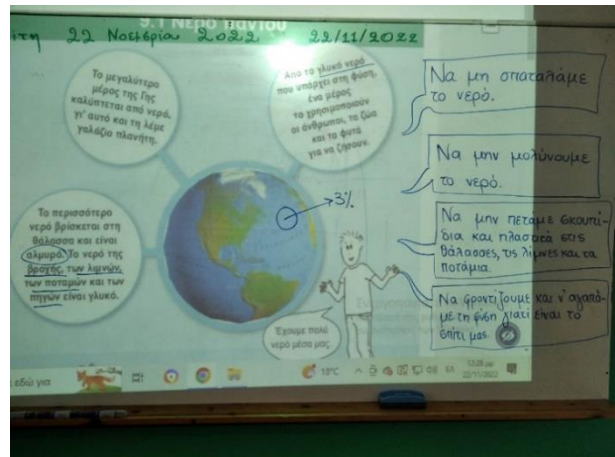 9.1 Νερό παντού
ίτη 22 Νοεμβρίου 2022 22/11/2022
Το μεγαλύτερο
μέρος της Γης
καλύπτεται από νερό,
γι' αυτό και τη λέμε
γαλάζιο πλανήτη.
Από το γλυκό νερό
που υπάρχει στη φύση,
ένα μέρος
το χρησιμοποιούν
οι άνθρωποι, τα ζώα
και τα φυτά
για να ζήσουν.
Το περισσότερο
νερό βρίσκεται στη
θάλασσα και είναι
αλμυρό. Το νερό της
βροχής, των λιμνών,
των ποταμών και των
πηγών είναι γλυκό.
3%
Έχουμε πολύ
νερό μέσα μας.
Να μη σπαταλάμε
το νερό.
Να μην μολύνουμε
το νερό.
Να μην πετάμε σκουπί-
δια και πλαστικά στις
θάλασσες, τις λίμνες και τα
ποτάμια.
Να φροντίζουμε και ν' αγαπά-
με τη φύση γιατί είναι το
σπίτι μας.
εδώ για
18°C
22/11/2022